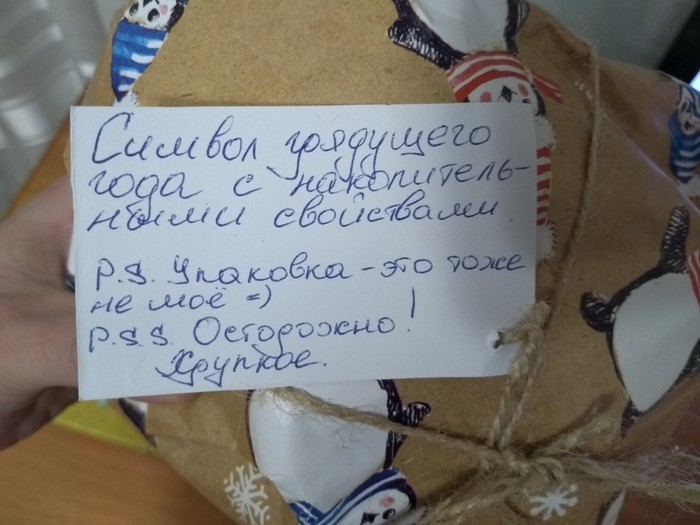 Символ грядущего
года с накопитель-
ными свойствами.
P.S. Упаковка - это тоже
не моё =)
P.S.S. Осторожно!
Хрупкое.